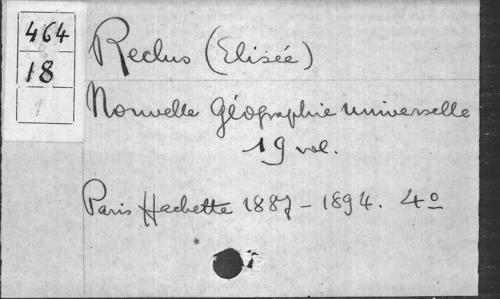 464
18
Reclus (Elisée)
Nouvelle Géographie universelle
19 vol.
Paris Hachette 1887 – 1894. 4º